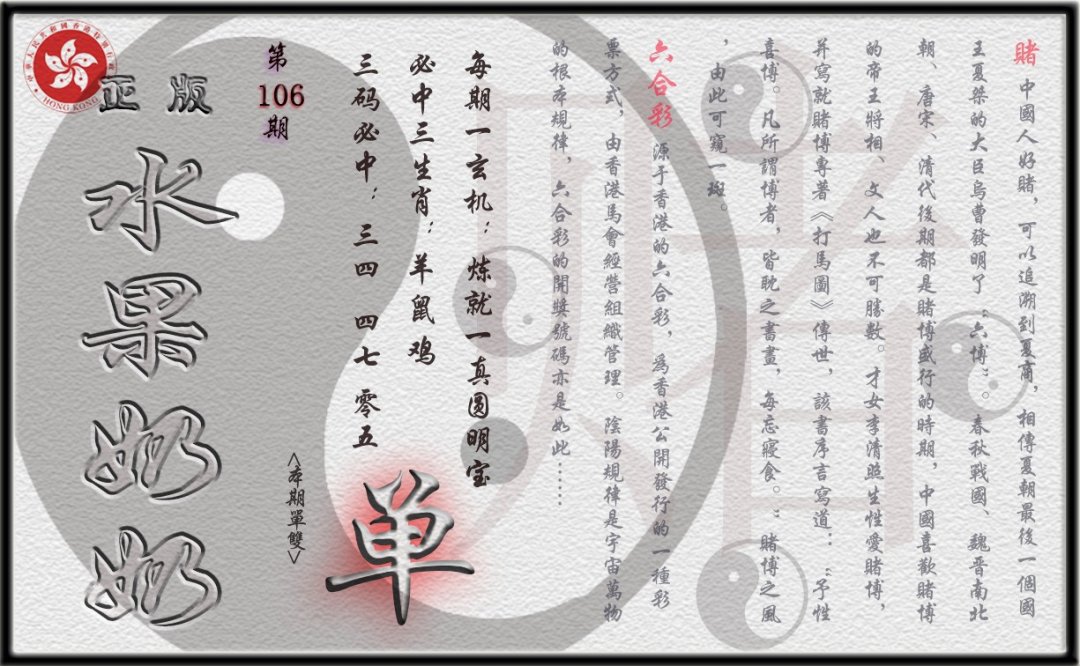 賭 中國人好賭，可以追溯到夏商，相傳夏朝最後一個國
王夏桀的大臣烏曹發明了“六博”。春秋戰國、魏晋南北
朝、唐宋、清代後期都是賭博盛行的時期，中國喜歡賭博
的帝王將相、文人也不可勝數。才女李清照生性愛賭博，
并寫就賭博專著《打馬圖》傳世，該書序言寫道：“予性
喜博。凡所謂博者，皆耽之晝晝，每忘寢食。”賭博之風
，由此可窺一斑。
六合彩 源于香港的六合彩，為香港公開發行的一種彩
票方式，由香港馬會經營組織管理。陰陽規律是宇宙萬物
的根本規律，六合彩的開獎號碼亦是如此……
每期一玄机：炼就一真圆明宝
必中三生肖：羊鼠鸡
三码必中：三四 四七 零五
单
<本期單雙>
第
106
期
正版
水果奶奶
HONG KONG